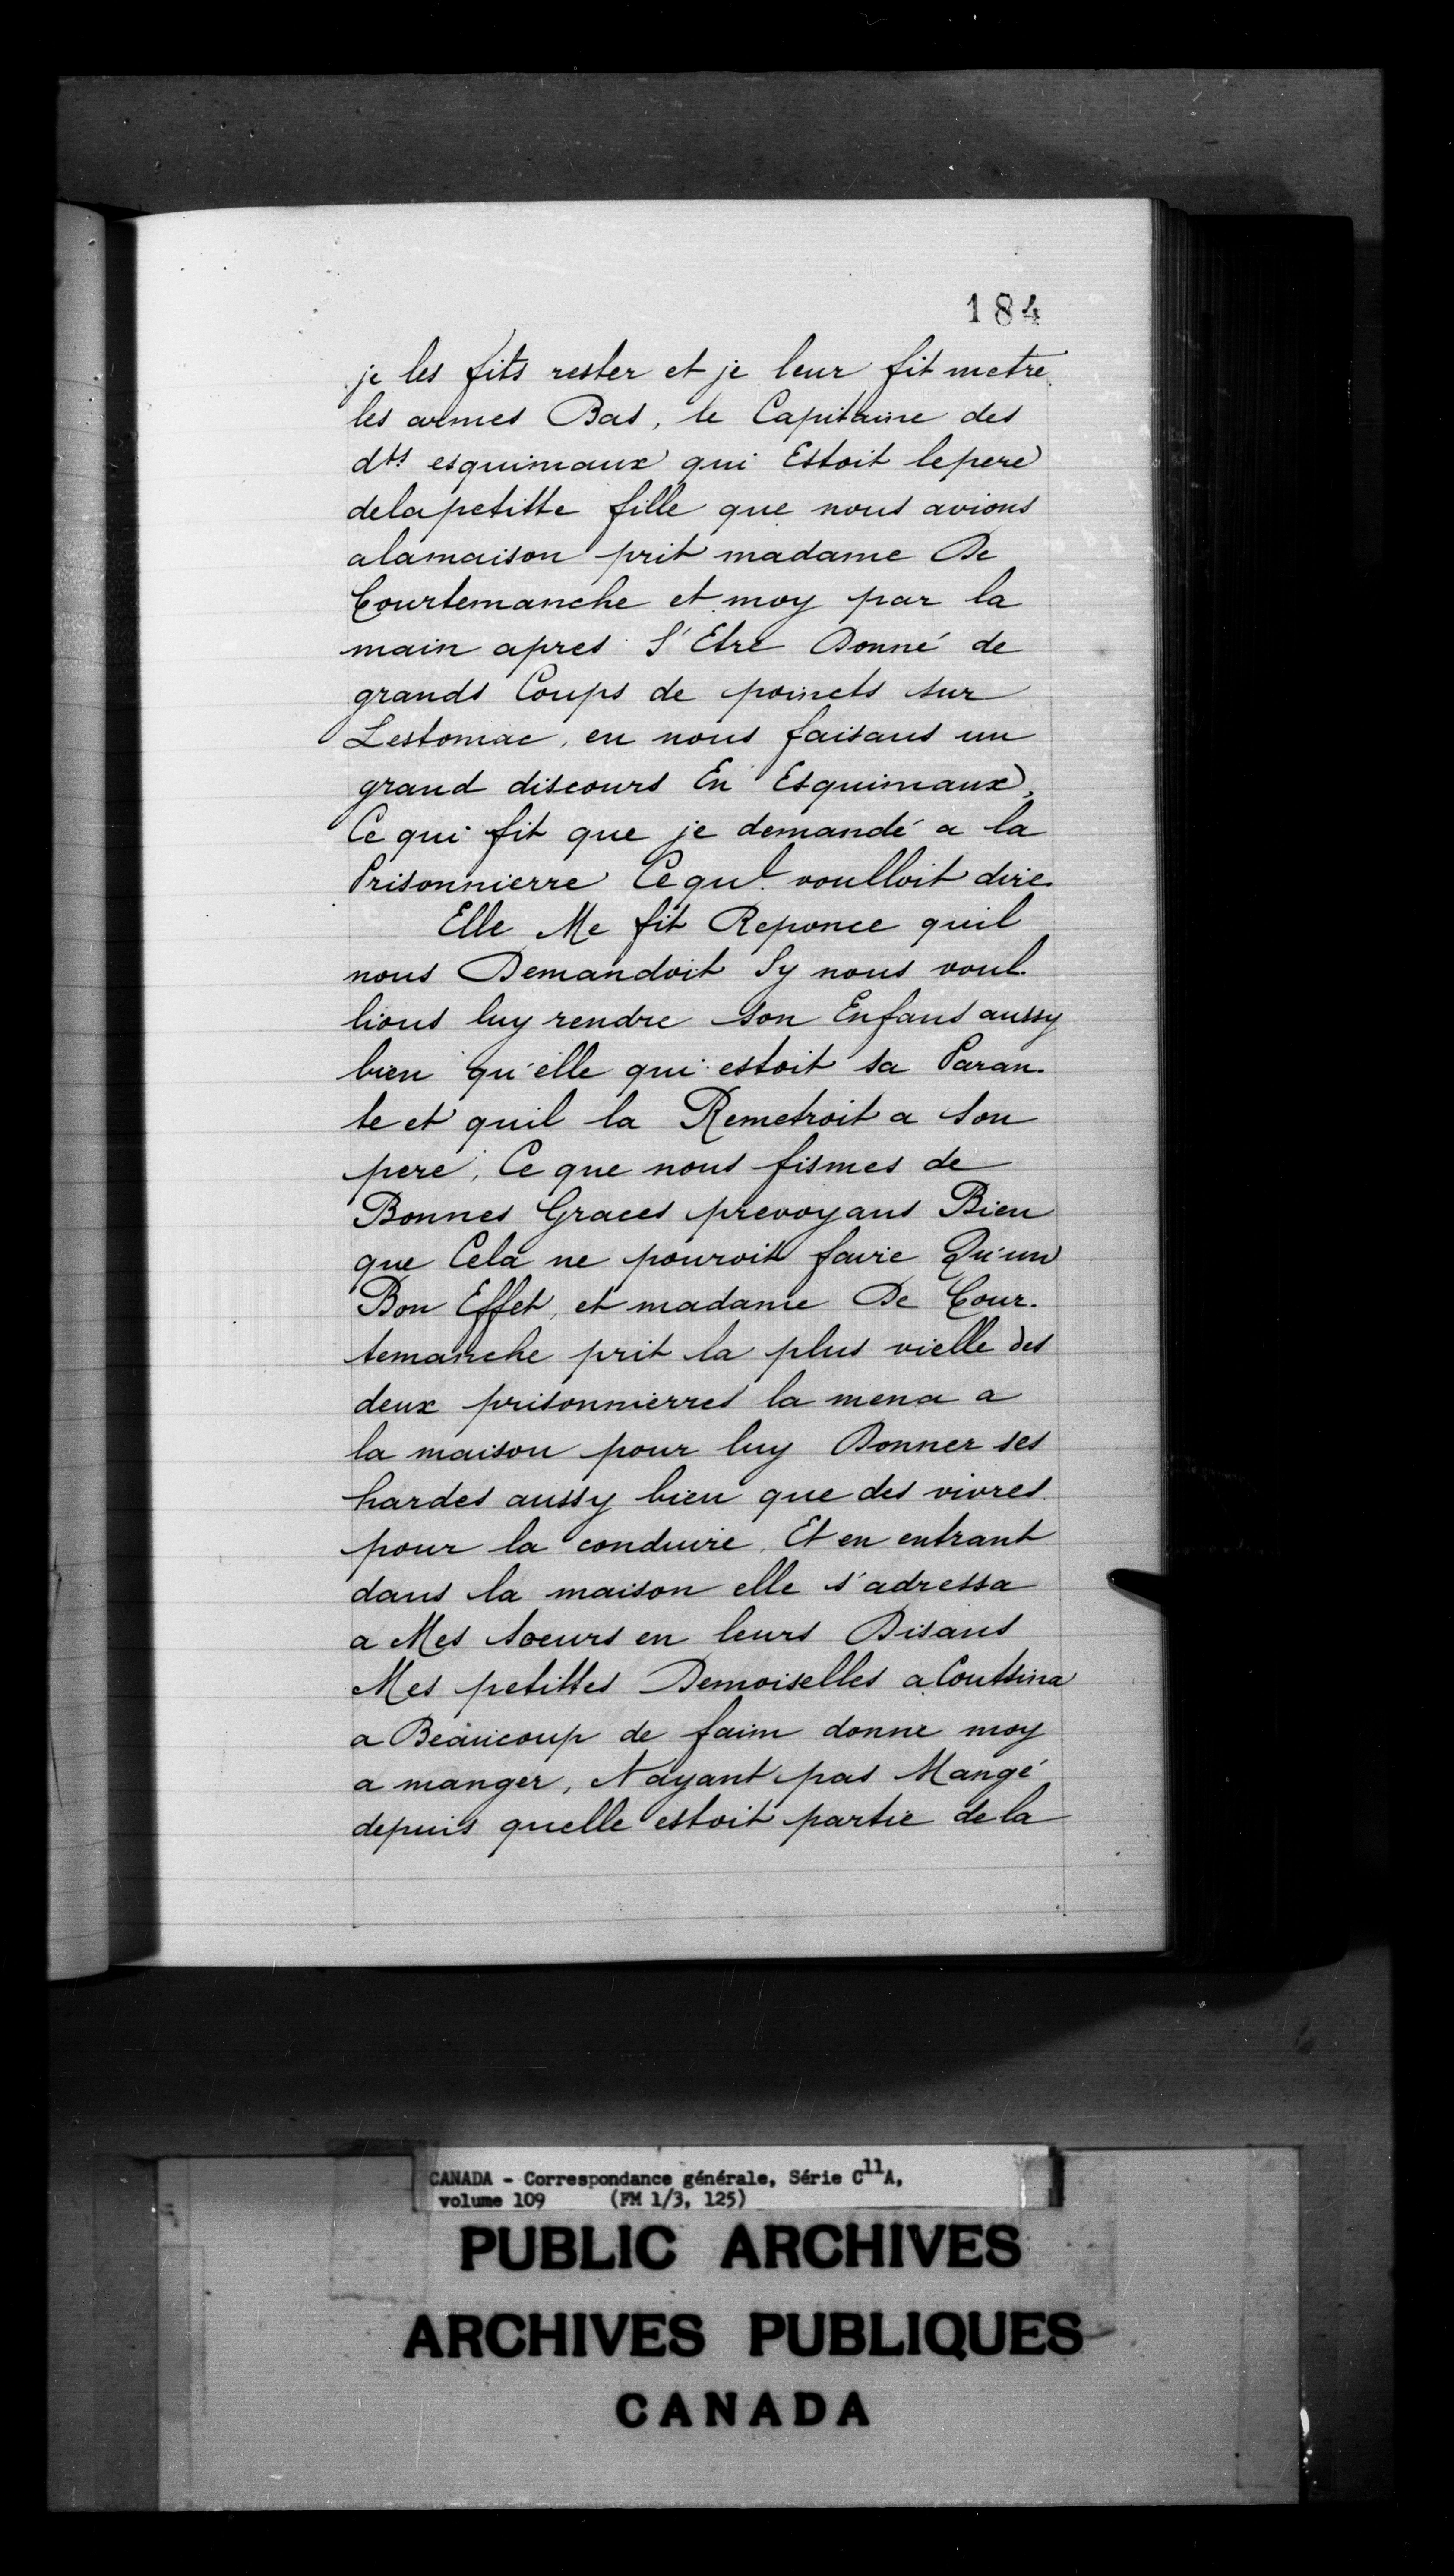 184
je les fits rester et je leur fit metre
les armes Bas, le Capitaine des
dts esquimaux qui Estoit lepere
delapetitte fille que nous avions
alamaison prit madame De
Courtemanche et moy par la
main apres S'Etre Donné de
grands Coups de poincts sur
Lestomac, en nous faisans un
grand discours En Esquimaux,
Ce qui fit que je demandé a la
Prisonnierre Cequl voulloit dire
Elle Me fit Reponce quil
nous Demandoit Sy nous voul-
lions luy rendre son Enfans aussy
bien qu'elle qui estoit sa Paran-
te et quil la Remetroit a son
pere, Ce que nous fismes de
Bonnes Graces prevoyans Bien
que Cela ne pouroit faire Qu'un
Bon Effet, et madame De Cour-
temanche prit la plus vielle des
deux prisonnierres la mena a
la maison pour luy Donner ses
hardes aussy bien que des vivres
pour la conduire, Et en entrant
dans la maison elle s'adressa
a Mes Soeurs en leurs Disans
Mes petittes Demoiselles a Couttsina
a Beaucoup de faim donne moy
a manger, Nayant pas Mangé
depuis quelle estoit partie de la
CANADA - Correspondance générale, Série C11A,
volume 109 (FM 1/3, 125)
PUBLIC ARCHIVES
ARCHIVES PUBLIQUES
CANADA